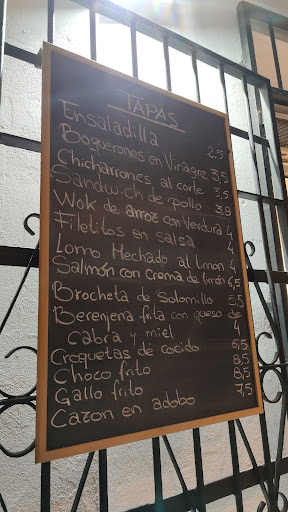 TAPAS
Ensaladilla 2,5
Boquerones en Vinagre 3,5
Chicharrones al corte 3,5
Sandwich de pollo 3,9
Wok de arroz con Verdura 4
Filetitos en salsa 4
Lomo Mechado al limon 4
Salmón con crema de limón 6,5
Brocheta de Solomillo 5,5
Berenjena frita con queso de
cabra y miel 4
Croquetas de cocido 6,5
Choco frito 8,5
Gallo frito 8,5
Cazon en adobo 7,5